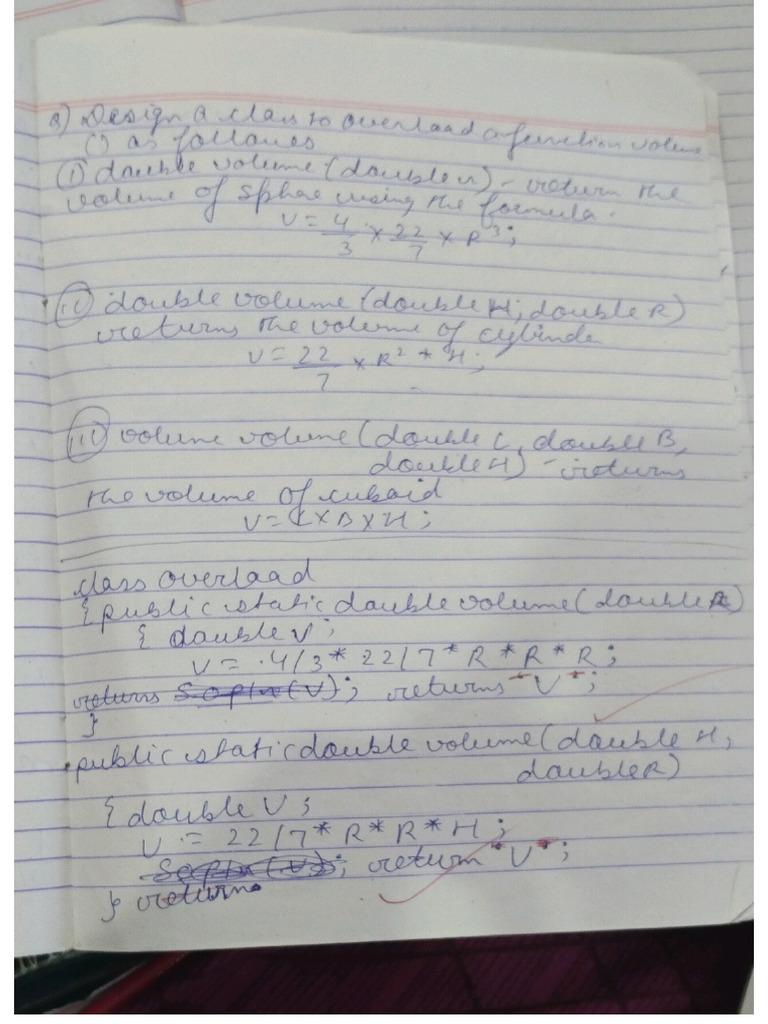 Q) Design a class to overload a function volume
() as follows
(i) double volume (double r) - return the
volume of sphere using the formula.
V = 4/3 × 22/7 × R³;
(ii) double volume (double H; double R)
returns the volume of cylinder
V = 22/7 × R² * H;
(iii) volume volume (double L, double B,
double H) - returns
the volume of cuboid
V = L × B × H;
class overload
{ public static double volume (double R)
{ double V;
V = 4/3 * 22/7 * R * R * R;
returns Sopln (V); returns "V";
}
public static double volume (double H,
double R)
{ double V;
V = 22/7 * R * R * H;
Sopln (V); return "V";
} returns